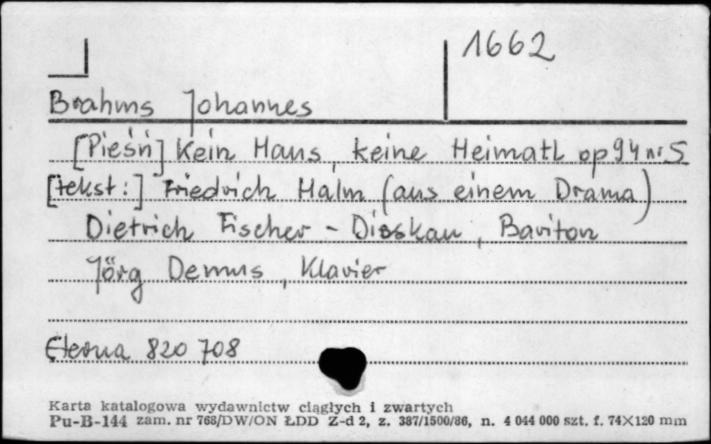 1662
Brahms Johannes
[Pieśń] Kein Haus, keine Heimath op 94 nr 5
[tekst:] Friedrich Halm (aus einem Drama)
Dietrich Fischer - Dieskau, Bariton
Jörg Demus, Klavier
Eterna 820 708
Karta katalogowa wydawnictw ciągłych i zwartych
Pu-B-144 zam. nr 768/DW/ON ŁDD Z-d 2, z. 387/1500/86, n. 4 044 000 szt. f. 74×120 mm